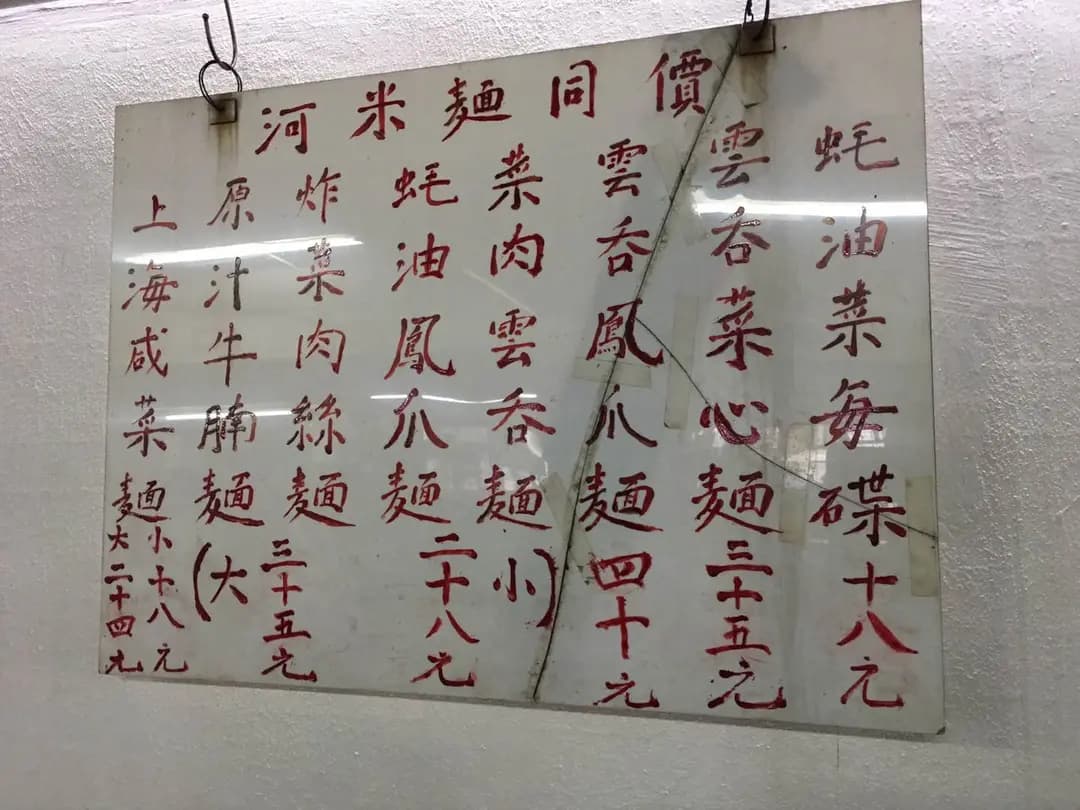 河米麵同價
蚝油菜每碟十八元
雲吞菜心麵三十五元
雲吞鳳爪麵四十元
菜肉雲吞麵
蚝油鳳爪麵
炸菜肉絲麵
原汁牛腩麵
(小
二十八元
三十五元
大)
上海咸菜麵
小十八元
大二十四元